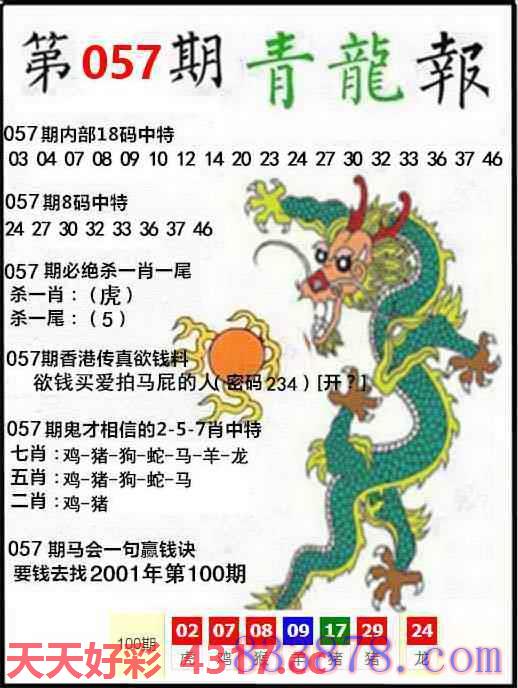 第057期青龍報
057期内部18码中特
03 04 07 08 09 10 12 14 20 23 24 27 30 32 33 36 37 46
057期8码中特
24 27 30 32 33 36 37 46
057期必绝杀一肖一尾
杀一肖：（虎）
杀一尾：（5）
057期香港传真欲钱料
欲钱买爱拍马屁的人（密码234）[开？]
057期鬼才相信的2-5-7肖中特
七肖：鸡-猪-狗-蛇-马-羊-龙
五肖：鸡-猪-狗-蛇-马
二肖：鸡-猪
057期马会一句赢钱诀
要钱去找2001年第100期
100期 02 07 08 09 17 29 24
虎 鸡 猴 羊 猪 猪 龙
天天好彩 4317.cc